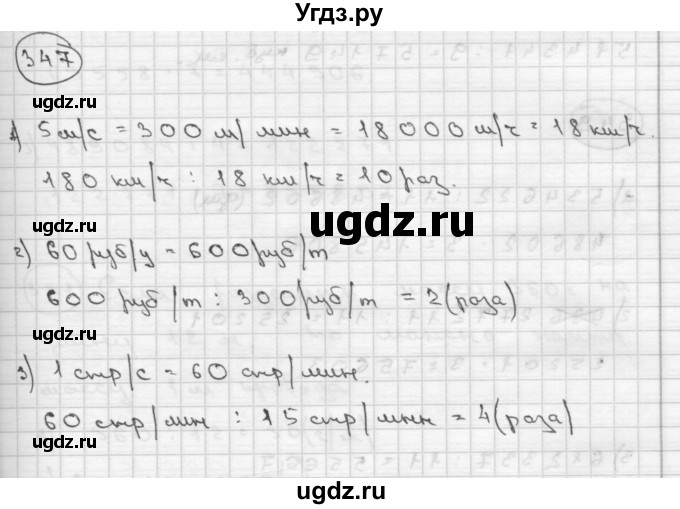 Угдз.ру
347
ugdz.ru
1) 5 м/с = 300 м/мин = 18 000 м/ч = 18 км/ч.
180 км/ч : 18 км/ч = 10 раз.
ugdz.ru
ugdz.ru
2) 60 руб/ц = 600 руб/т
600 руб/т : 300 руб/т = 2 (раза)
ugdz.ru
3) 1 стр/с = 60 стр/мин.
60 стр/мин : 15 стр/мин = 4 (раза)
ugdz.ru
ugdz.ru